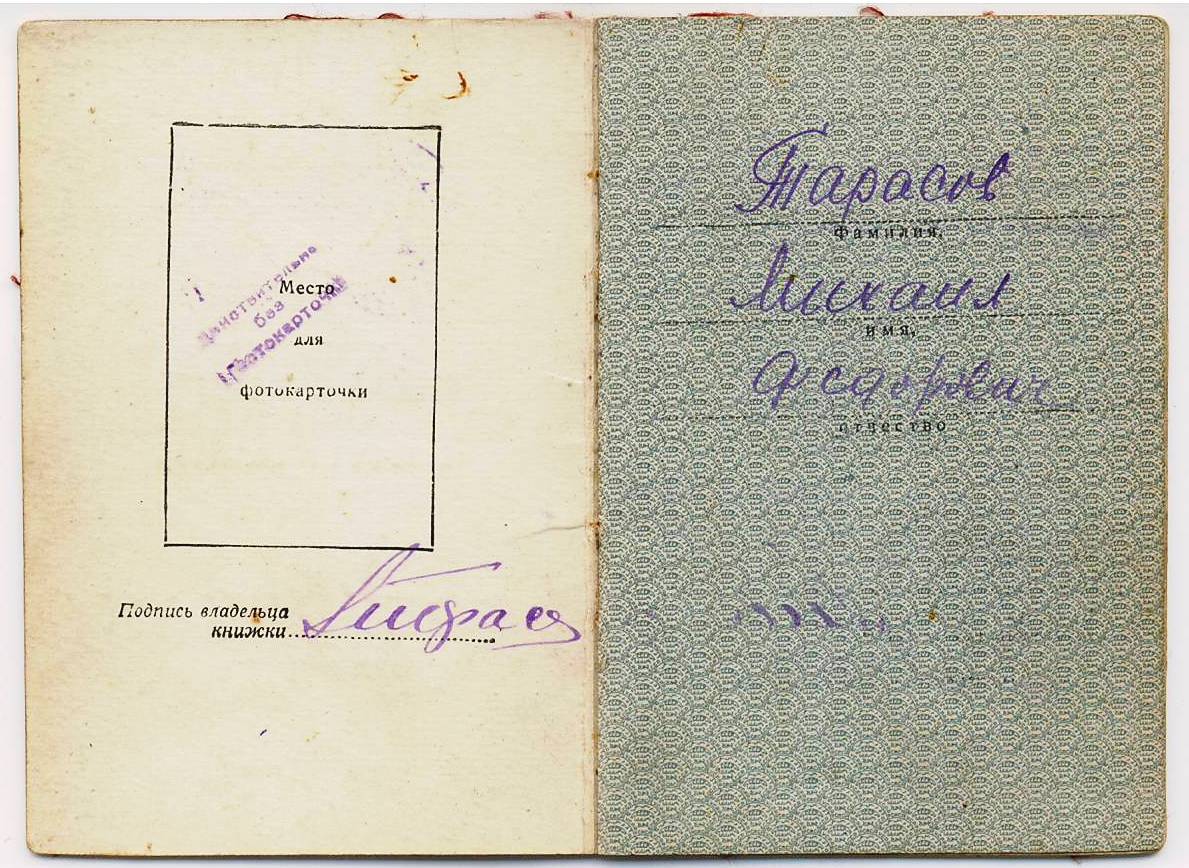 Действительно
без
фотокарточки
Место
для
фотокарточки
Подпись владельца
книжки
Тарасов
фамилия,
Михаил
имя,
Федорович
отчество